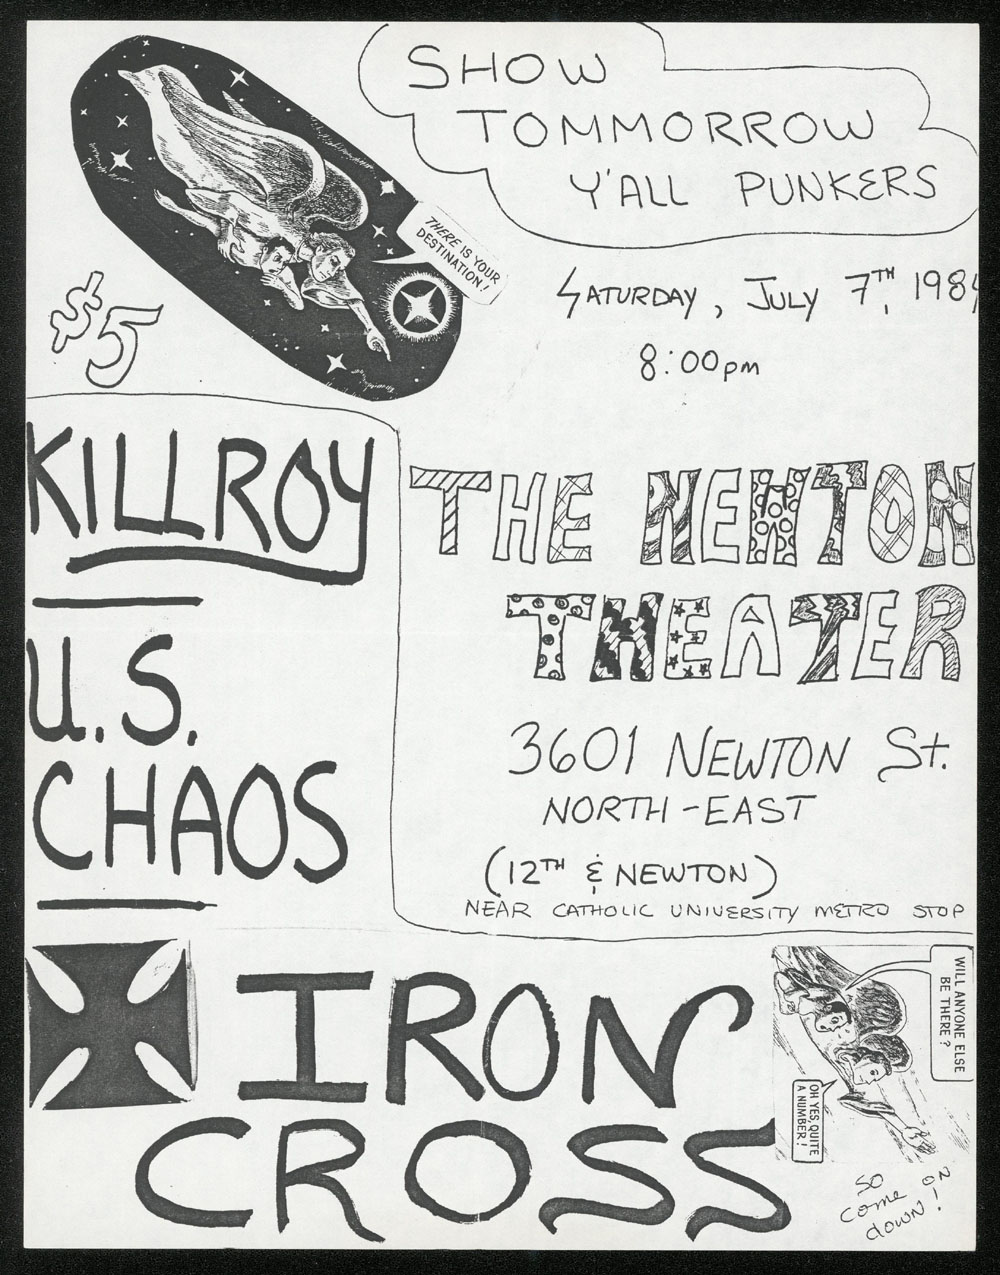 SHOW
TOMMORROW
Y'ALL PUNKERS
THERE IS YOUR
DESTINATION!
$5
SATURDAY, JULY 7TH, 1984
8:00pm
KILLROY
U.S.
CHAOS
THE NEWTON
THEATER
3601 NEWTON St.
NORTH-EAST
(12TH & NEWTON)
NEAR CATHOLIC UNIVERSITY METRO STOP
IRON
CROSS
WILL ANYONE ELSE
BE THERE?
OH YES, QUITE
A NUMBER!
SO
come ON
down!